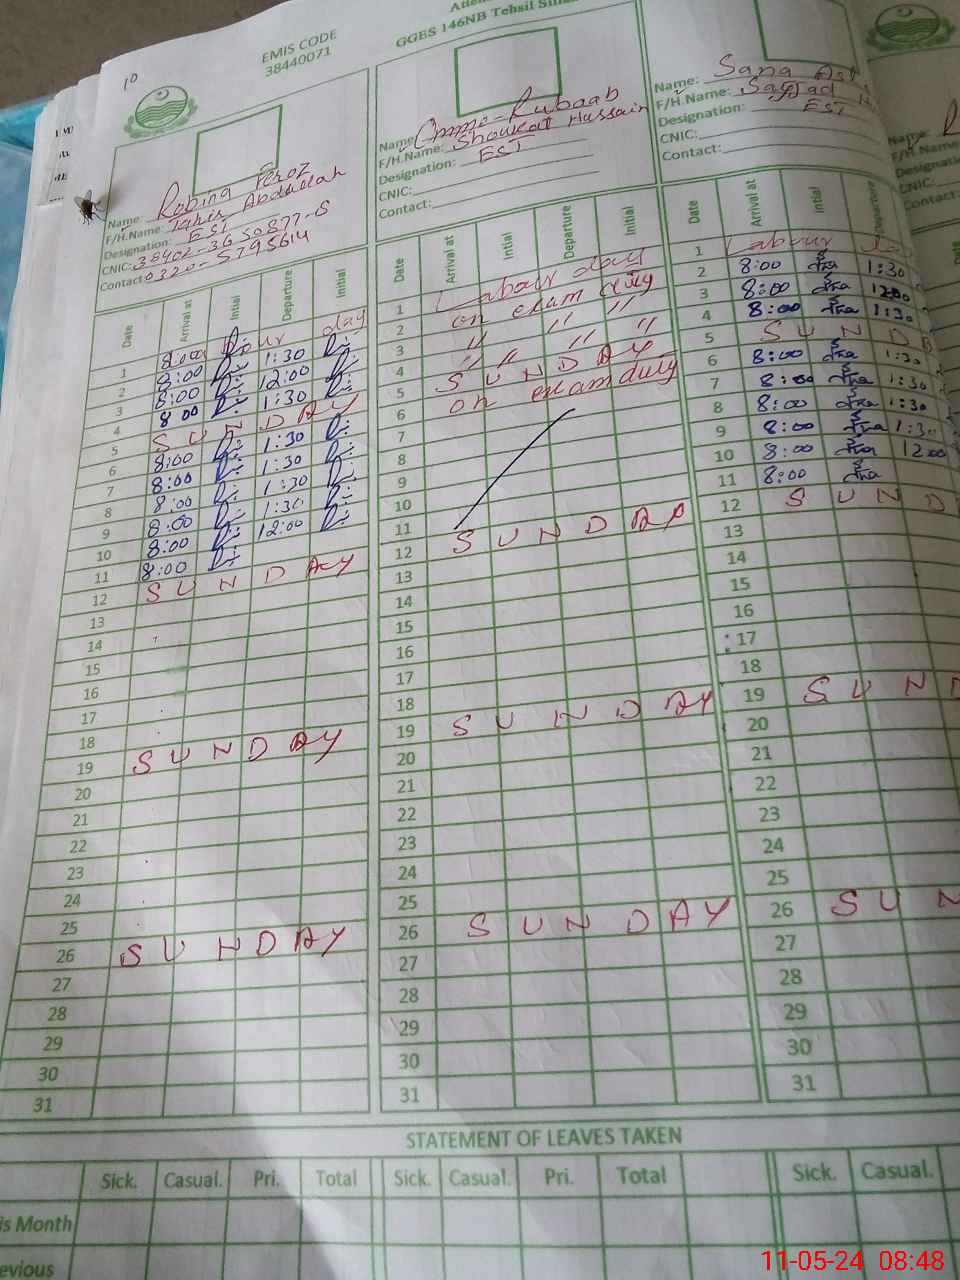 10
EMIS CODE
38440071
GGES 146NB Tehsil
Name: Robina Feroz
F/H.Name: Tahir Abdullah
Designation: EST
CNIC: 38402-3650877-8
Contact: 0320-5795614
Date Arrival at Intial Departure Initial
1 Labour day
2 8:00 1:30
3 8:00 12:00
4 8:00 1:30
5 SUNDAY
6 8:00 1:30
7 8:00 1:30
8 8:00 1:30
9 8:00 1:30
10 8:00 12:00
11 8:00
12 SUNDAY
13
14
15
16
17
18
19 SUNDAY
20
21
22
23
24
25
26 SUNDAY
27
28
29
30
31
Name: Rubaab
F/H.Name: Shoukat Hussain
Designation: EST
CNIC:
Contact:
Date Arrival at Intial Departure Initial
1 Labour day
2 on exam duty
3 " " "
4 " " " "
5 SUNDAY
6 on exam duty
7
8
9
10
11
12 SUNDAY
13
14
15
16
17
18
19 SUNDAY
20
21
22
23
24
25
26 SUNDAY
27
28
29
30
31
Name: Sana
F/H.Name: Sajjad
Designation: EST
CNIC:
Contact:
Date Arrival at Intial Departure
1 Labour
2 8:00 1:30
3 8:00 1200
4 8:00 1:30
5 SUND
6 8:00 1:30
7 8:00 1:30
8 8:00 1:30
9 8:00 1:30
10 8:00 1200
11 8:00
12 SUND
13
14
15
16
17
18
19 SUND
20
21
22
23
24
25
26 SUN
27
28
29
30
31
Name:
F/H.Name:
Designation
CNIC:
Contact:
STATEMENT OF LEAVES TAKEN
Sick. Casual. Pri. Total Sick. Casual. Pri. Total Sick. Casual.
is Month
evious
11-05-24 08:48